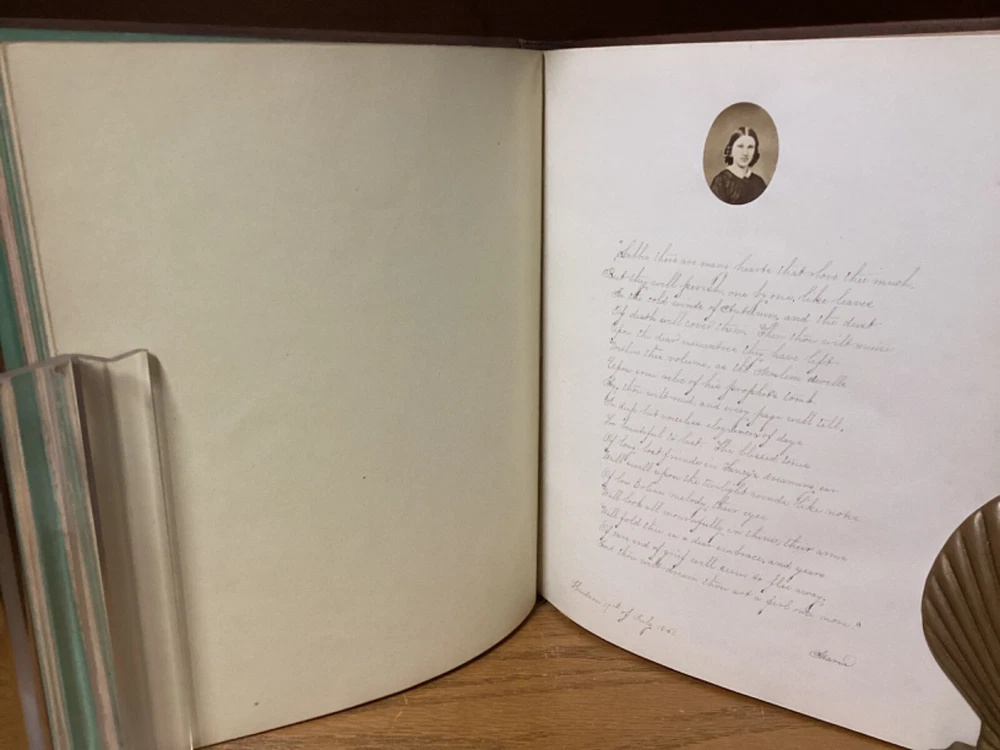 "Libbie there are many hearts that love thee much
But they will perish, one by one, like leaves
In the cold winds of Autumn, and the dust
Of death will cover them. Then thou wilt muse
Upon the dear mementoes they have left
Within this volume, as the Moslem dwells
Upon some relic of his prophets tomb.
Ay, thou wilt read, and every page will tell,
In deep but voiceless eloquence, of days
Too beautiful to last. The blessed tones
Of long lost friends in Fancy's dreaming ear
Will swell upon the twilight winds like notes
Of low Eolian melody, their eyes
Will look all mournfully in thine, their arms
Will fold thee in a dear embrace, and years
Of care and of grief will seem to flee away,
And thou wilt dream thou art a girl once more."
of July